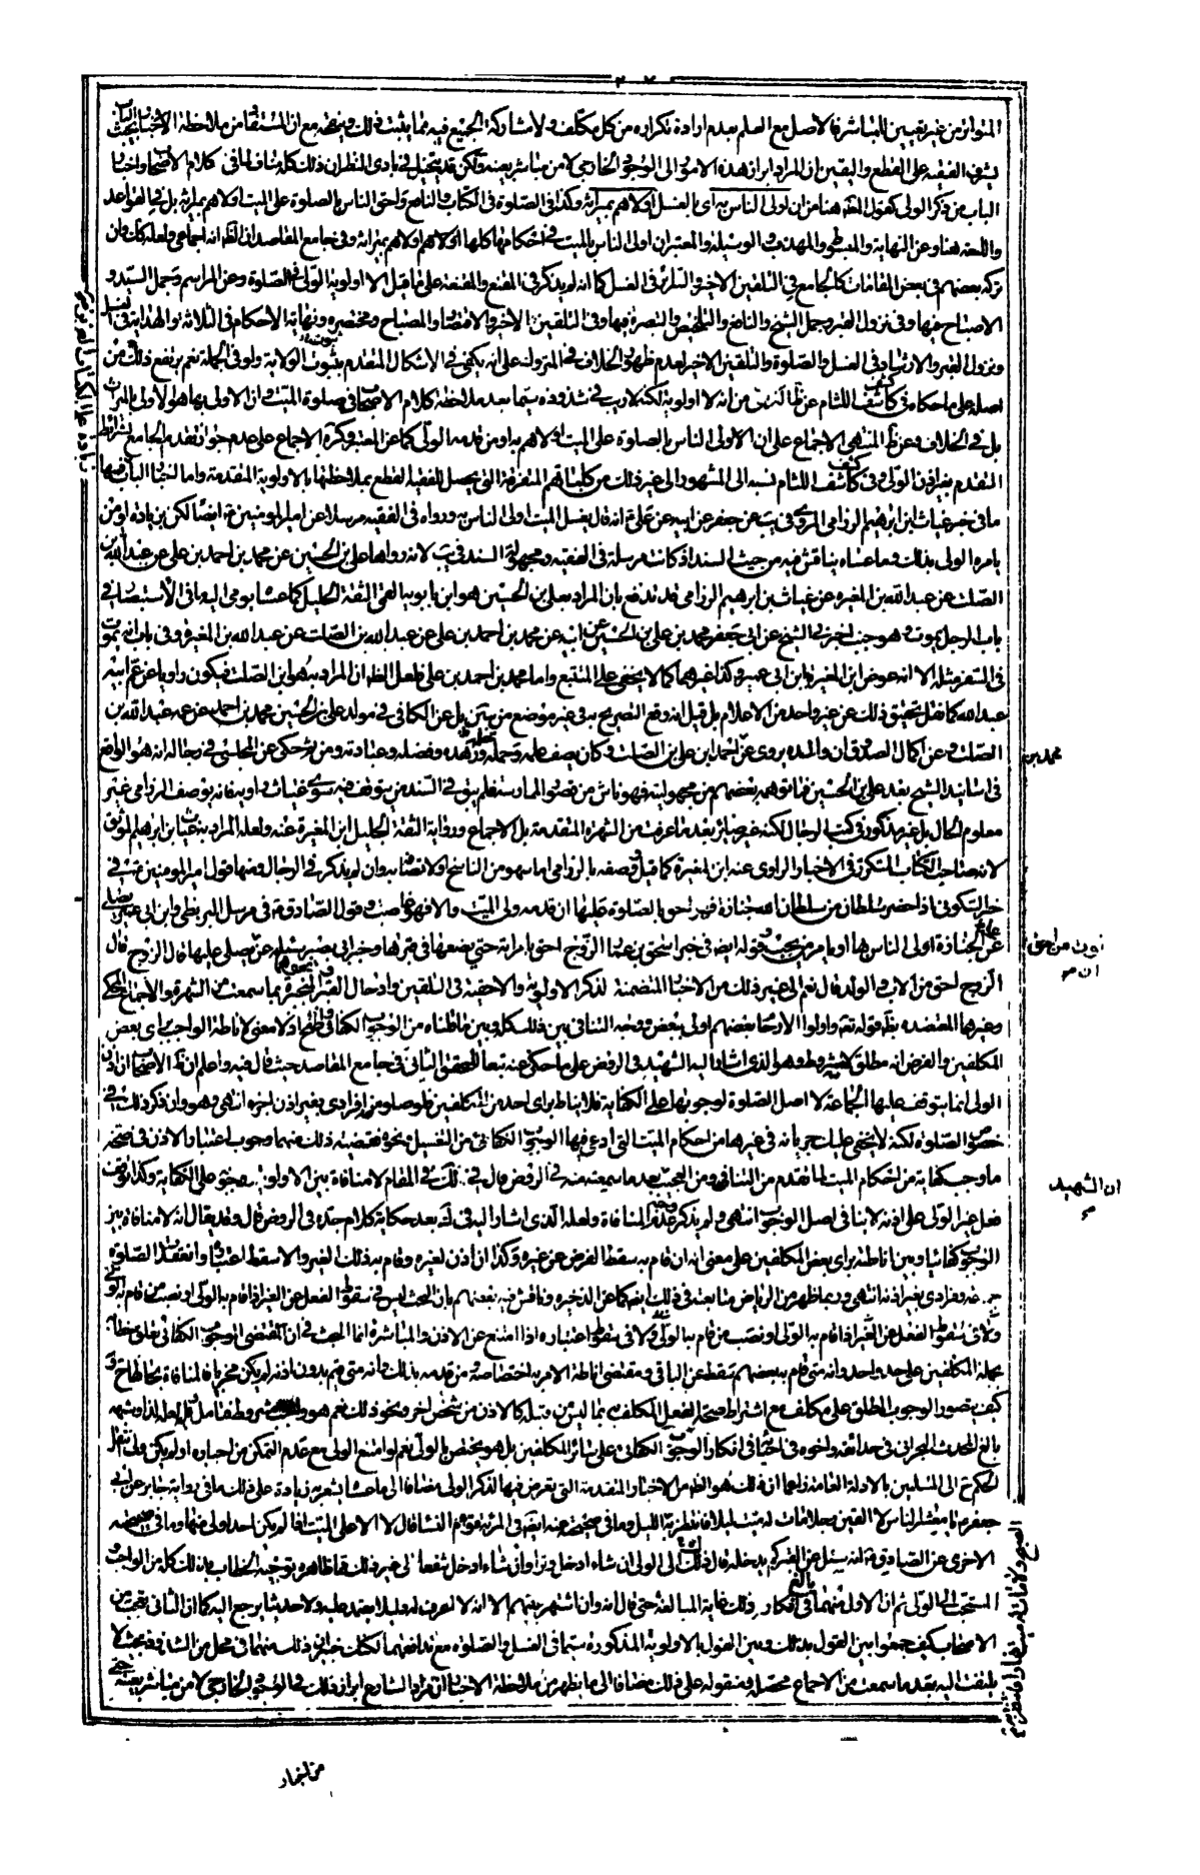 المتواتر من غير تعيين للمباشر فالاصل مع العلم بعدم ارادة تكراره من كل مكلف ولا مشاركة الجميع فيه مما يثبت ذلك مع ان المستفاد من ملاحظة الاخبار
يشرف الفقيه على القطع واليقين ان المراد ابراز هذه الامور الى الوجود الخارجي لا من مباشر بعينه ولكن قد يتخيل في بادى النظر ان ذلك كله مناف لما في كلام الاصحاب واخبار
الباب من ذكر الولى كقول المصنف هنا من ان اولى الناس به اى بالغسل اولاهم بميراثه وكذا في الصلوة في الكتاب والنافع واحق الناس بالصلوة على الميت اولاهم بميراثه بل في القواعد
واللمعة هنا وعن النهاية والمبسوط والمهذب والوسيلة والمعتبر ان اولى الناس بالميت في احكامه كلها اولاهم بميراثه وفي جامع المقاصد ان الظاهر انه اجماعي ولعله كك وان
تركه بعضهم في بعض المقامات كالجامع في التلقين الاخير والسرائر في الغسل كما انه لم يذكر في المقنع والمقنعة على ما قيل الا اولوية الولى في الصلوة وعن المراسم وجمل السيد و
الاصباح فيها وفي نزول القبر وجمل الشيخ والنافع والتلخيص والتبصرة فيها وفي التلقين الاخير والاقتصاد والمصباح ومختصره ونهاية الاحكام في الثلاثة والهداية في الغسل
ونزول القبر والارشاد في الغسل والصلوة والتلقين الاخير لعدم ظهور الخلاف في المتروك على انه يكفي في الاشكال المتقدم ثبوت الولاية ولو في الجملة نعم يرتفع ذلك من
اصله على ما حكاه في كاشف اللثام عن ظاهر من انه لا اولوية لكنه لا ريب في شذوذه سيما بعد ملاحظة كلام الاصحاب في صلوة الميت وان الاولى بها هو الاولى بالميراث
بل نفي الخلاف وعن ظاهر المنتهى الاجماع على ان الاولى الناس بالصلوة على الميت اولاهم به او من قدمه الولى كما عن المعتبر وكرة الاجماع على عدم جواز تقدم الجامع لشرائط
التقدم بغير اذن الولى وفي كاشف اللثام نسبه الى المشهور الى غير ذلك من كلماتهم المتفرقة التي يحصل للفقيه القطع بملاحظتها بالاولوية المتقدمة واما الاخبار فيها
ما في خبر غياث ابن ابرهيم الرزامى المروى في يب عن جعفر عن ابيه عن علي ع انه قال يغسل الميت اولى الناس به ورواه في الفقيه مرسلا عن امير المومنين ع ايضا لكن بزيادة او من
يامره الولى بذلك وما عساه يناقش فيه من حيث السند اذ كانت مرسلة في الفقيه ومجهولة السند في يب لانه رواها على بن الحسين عن محمد بن احمد بن علي عن عبد الله بن
الصلت عن عبد الله بن المغيرة عن غياث بن ابرهيم الرزامى قد تدفع بان المراد بعلى بن الحسين هو ابن بابويه القمي الثقة الجليل كما عساه يومي اليه ما في الاستبصار في
باب الرجل يموت وهو جنب اخبرنى الشيخ عن ابي جعفر محمد بن علي بن الحسين عن ابيه عن محمد بن احمد بن علي عن عبد الله بن الصلت عن عبد الله بن المغيرة وفي باب انه يموت
في السفر مثله الا انه عوض ابن المغيرة بابن ابى عمير وكذا غيرهما كما لا يخفى على المتتبع واما محمد بن احمد بن علي فلعل الظاهر ان المراد به هو ابن الصلت فيكون راويا عن عم ابيه
عبد الله كما نقل تحقيق ذلك عن غير واحد من الاعلام بل قيل انه وقع التصريح به في غير موضع من يب بل عن الكافي في مولد على بن الحسين محمد بن احمد عن عمه عبد الله بن
الصلت وعن اكمال الصدوق ان والده يروى عن احمد ابن علي بن الصلت وكان يصف علمه وزهده وفضله وعبادته ومن ثم حكى عن المجلسى في رجاله انه هو الواقع
في اسانيد الشيخ بعد على بن الحسين فما توهمه بعضهم من مجهوليته فهو ناش من قصور الممارسة فلم يبق في السند من يتوقف فيه سوى غياث راويه فانه بوصف الرزامى غير
معلوم الحال بل غير مذكور في كتب الرجال لكنه غير ضائر بعد ما عرفت من الشهرة المتقدمة بل الاجماع ورواية الثقة الجليل ابن المغيرة عنه ولعله المراد به غياث بن ابرهيم الموثق
لانه صاحب الكتاب المتكرر في الاخبار الراوى عنه ابن المغيرة كما قيل ووصفه بالرزامى اما سهو من الناسخ او لاتصافه به وان لم يذكر في الرجال ومنها قول امير المومنين ع في
خبر السكونى اذا حضر سلطان من سلطان الله جنازة فهو احق بالصلوة عليها ان قدمه ولى الميت والا فهو غاصب وقول الصادق ع في مرسل البزنطى وابن ابى عمير يصلى
على الجنازة اولى الناس بها او يامر من يحب وقوله ايضا في خبر اسحق بن عمار الزوج احق بامراته حتى يضعها في قبرها وخبر ابى بصير يسئله عمن يصلى عليها قال الزوج قال
الزوج احق من الاب والولد قال نعم الى غير ذلك من الاخبار المتضمنة لذكر الاولوية والاحقية في التلقين وادخال القبر ونحوهما المنجبرة بما سمعت من الشهرة والاجماع المحكى
وغيرها المعتضدة بظاهر قوله تعالى واولوا الارحام بعضهم اولى ببعض ووجه التنافي بين ذلك كله وبين ما قلناه من الوجوب الكفائي واضح اذ لا معنى لاناطة الواجب براى بعض
المكلفين والفرض انه مطلق لا مشروط وهو الذى اشار اليه الشهيد في الروض على ما حكى عنه تبعا للمحقق الثاني في جامع المقاصد حيث قال فيه واعلم ان ظاهر الاصحاب ان اذن
الولى انما يتوقف عليها الجماعة لا اصل الصلوة لوجوبها على الكفاية فلا يناط براى احد من المكلفين فلو صلوا فرادى بغير اذن اجزء انتهى وهو وان ذكر ذلك في
خصوص الصلوة لكنه لا يخفى عليك جريانه في غيرها من احكام الميت التي ادعى فيها الوجوب الكفائى من الغسيل ونحوه فقضية ذلك منهما وجوب اعتبار الاذن في صحة
ما وجب كفاية من احكام الميت لما تقدم من التنافي ومن العجب بعد ما سمعته منه في الروض قال في لك في المقام لا منافاة بين الاولوية وجوبه على الكفاية وكذا توقف
فعل غير الولى على اذنه لا ينافي اصل الوجوب انتهى ولم يذكر وجه عدم المنافاة ولعله الذى اشار اليه في ك بعد حكاية كلام جده في الروض قال وقد يقال انه لا منافاة بين
الوجوب كفائيا وبين اناطته براى بعض المكلفين على معنى انه ان قام به سقط الفرض عن غيره وكذا ان اذن لغيره وقام به ذلك الغير والا سقط اعتباره وانعقدت الصلوة
جماعة وفرادى بغير اذنه انتهى وربما ظهر من الرياض متابعته في ذلك ايضا كما عن الذخيرة وناقش فيه بعضهم بان البحث ليس في سقوط الفعل عن الغير اذا قام به الولى او نصب من قام به
ولا في سقوط اعتباره اذا امتنع عن الاذن والمباشرة انما البحث في ان مقتضى الوجوب الكفائي تعلق خطابه
بجملة المكلفين على حد واحد وانه متى قام به بعضهم سقط عن الباقي ومقتضى اناطة الامر به اختصاصه ومن قدمه بذلك وانه متى وقع بدون اذنه لم يكن مجزيا فالمنافاة بحالها
كيف يتصور الوجوب المطلق على مكلف مع اشتراط صحة الفعل المكلف به بما ليس من قبله كالاذن من شخص اخر ونحو ذلك نعم هو واجب مشروط فتامل ولعله لذا وشبهه
بالغ المحدث البحراني في حدائقه واخوه في احياه في انكار الوجوب الكفائى على سائر المكلفين بل هو مختص بالولى نعم لو امتنع الولى مع عدم التمكن من اجباره او لم يكن ولى انتقل
الحكم ح الى المسلمين بالادلة العامة وادعيا ان ذلك هو الظاهر من الاخبار المتقدمة التي تعرض فيها لذكر الولى مضافا الى ما عساه يشعر به زيادة على ذلك ما في رواية جابر عن ابى
جعفر ع يا معشر الناس لا الفين رجلا مات له ميت ليلا فانتظر به الليل وما في صحيح عنه ايضا في المرئة تؤم النساء قال لا الا على الميت اذا لم يكن احد اولى منها وما في صحيحة
الاخرى عن الصادق ع انه سئل عن القبر كم يدخله قال ذلك الى الولى ان شاء ادخل وترا وان شاء ادخل شفعا الى غير ذلك مما ظاهره توجيه الخطاب بذلك كله من الواجب و
المستحب الى الولى ثم ان الاول منهما بالغ في انكار ذلك غاية المبالغة حتى قال انه وان اشتهر بينهم الا انه لا نعرف له دليلا يعتمد عليه ولا حديثا يرجع اليه كما ان الثاني تعجب من
الاصحاب كيف جمعوا بين القول بذلك وبين القول بالاولوية المذكورة سيما في الغسل والصلوة مع تدافعهما لكنك خبير ان ذلك منهما في محل من الشذوذ بحيث لا
يلتفت اليه بعد ما سمعت من الاجماع محصله ومنقوله على ذلك مضافا الى ما يظهر من ملاحظة الاخبار ان مراد الشارع ابراز ذلك في الوجود الخارجي لا من مباشر بعينه حتى
محمد بن
ان الشهيد